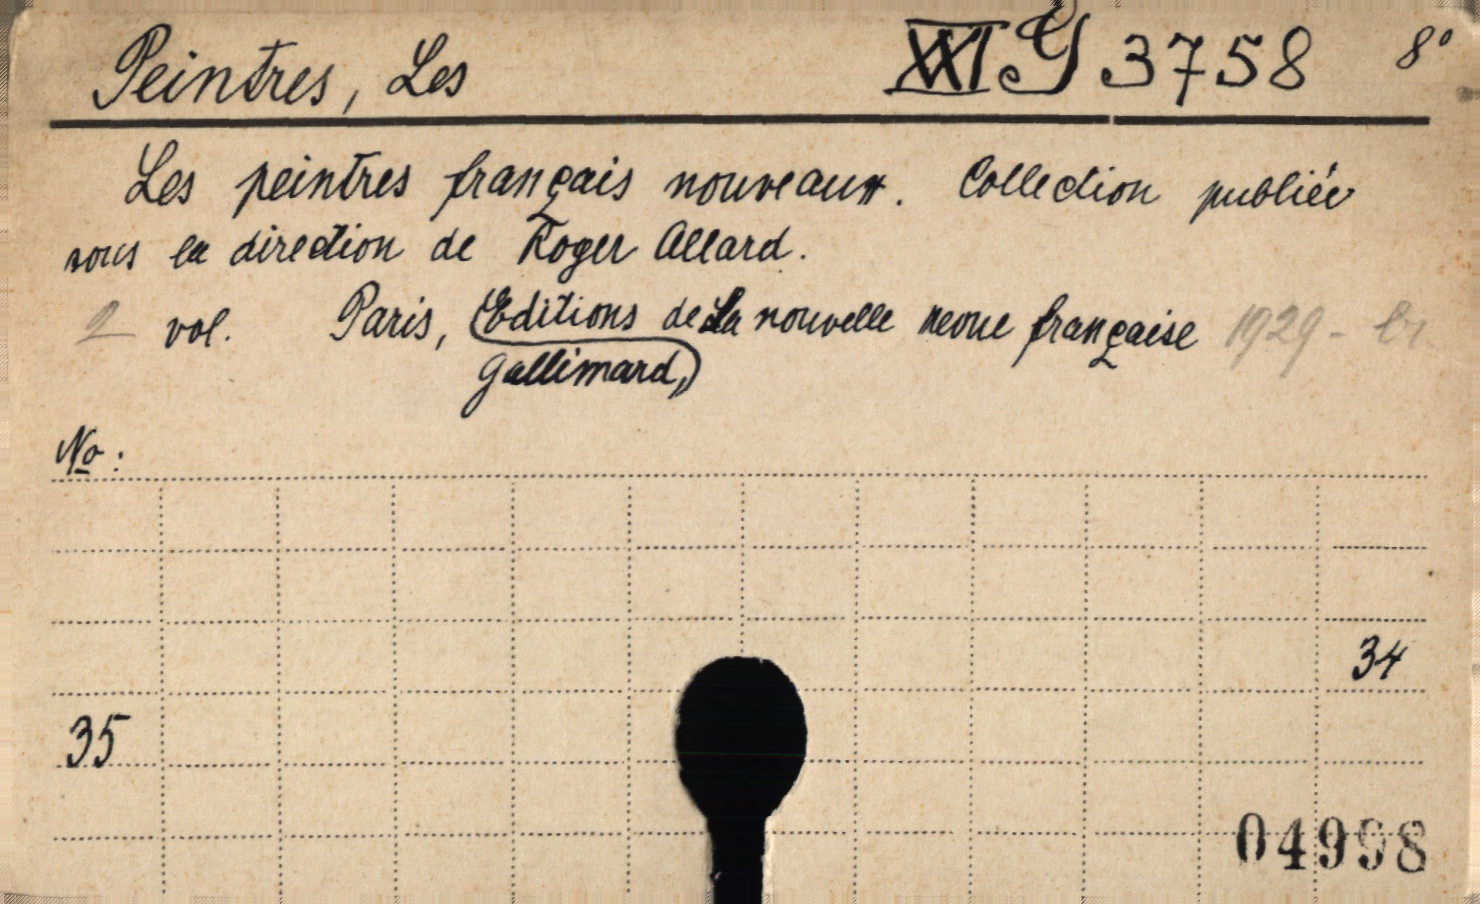 Peintres, Les XXI G 3758 8°
Les peintres français nouveaux. Collection publiée
sous la direction de Roger Allard.
2 vol. Paris, (Editions de La nouvelle revue française 1929 -
Gallimard,)
No :
34
35
04998